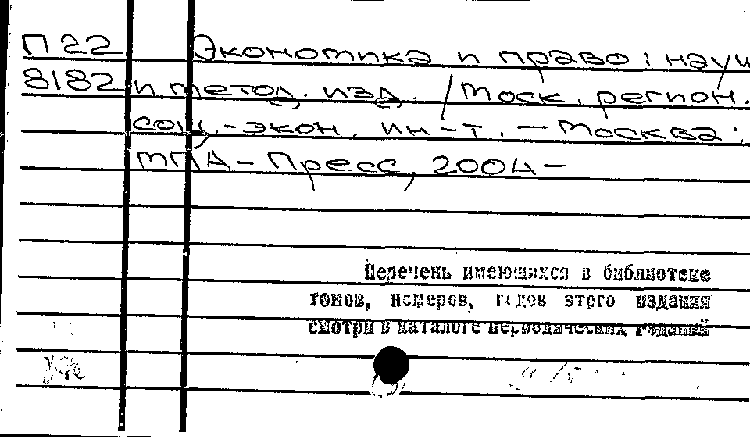 П22 Экономика и право : науч
8182 и метод. изд. / Моск. регион.
соц.-экон. ин-т. — Москва :
МПА-Пресс, 2004-
Перечень имеющихся в библиотеке
томов, номеров, годов этого издания
смотри в каталоге периодических изданий